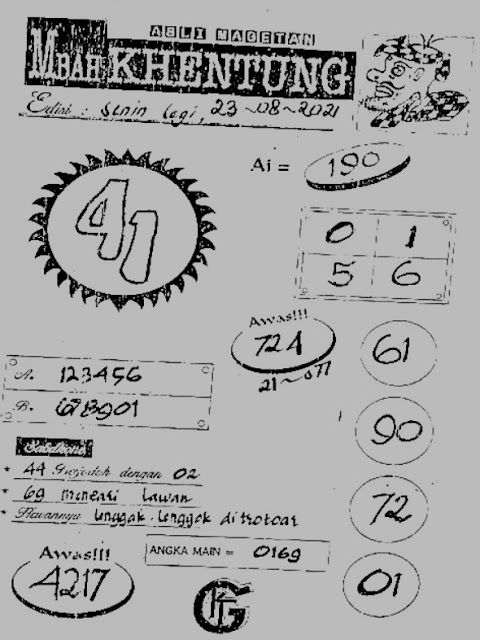 ASLI MAGETAN
MBAH KHENTUNG
Edisi : Senin Legi, 23-08-2021
Ai = 190
41
0 1
5 6
Awas!!!
724
21-077
61
A. 123456
B. 678901
90
* 44 Grojodoh dengan 02
* 69 mencari Lawan
* Hewannya Lenggak-Lenggok di trotoar
72
ANGKA MAIN = 0169
Awas!!!
4217
01